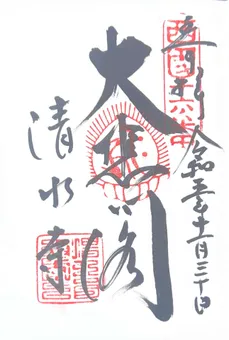 奉拝 令和五年十一月三十日
西国十六番
大悲閣
清水寺